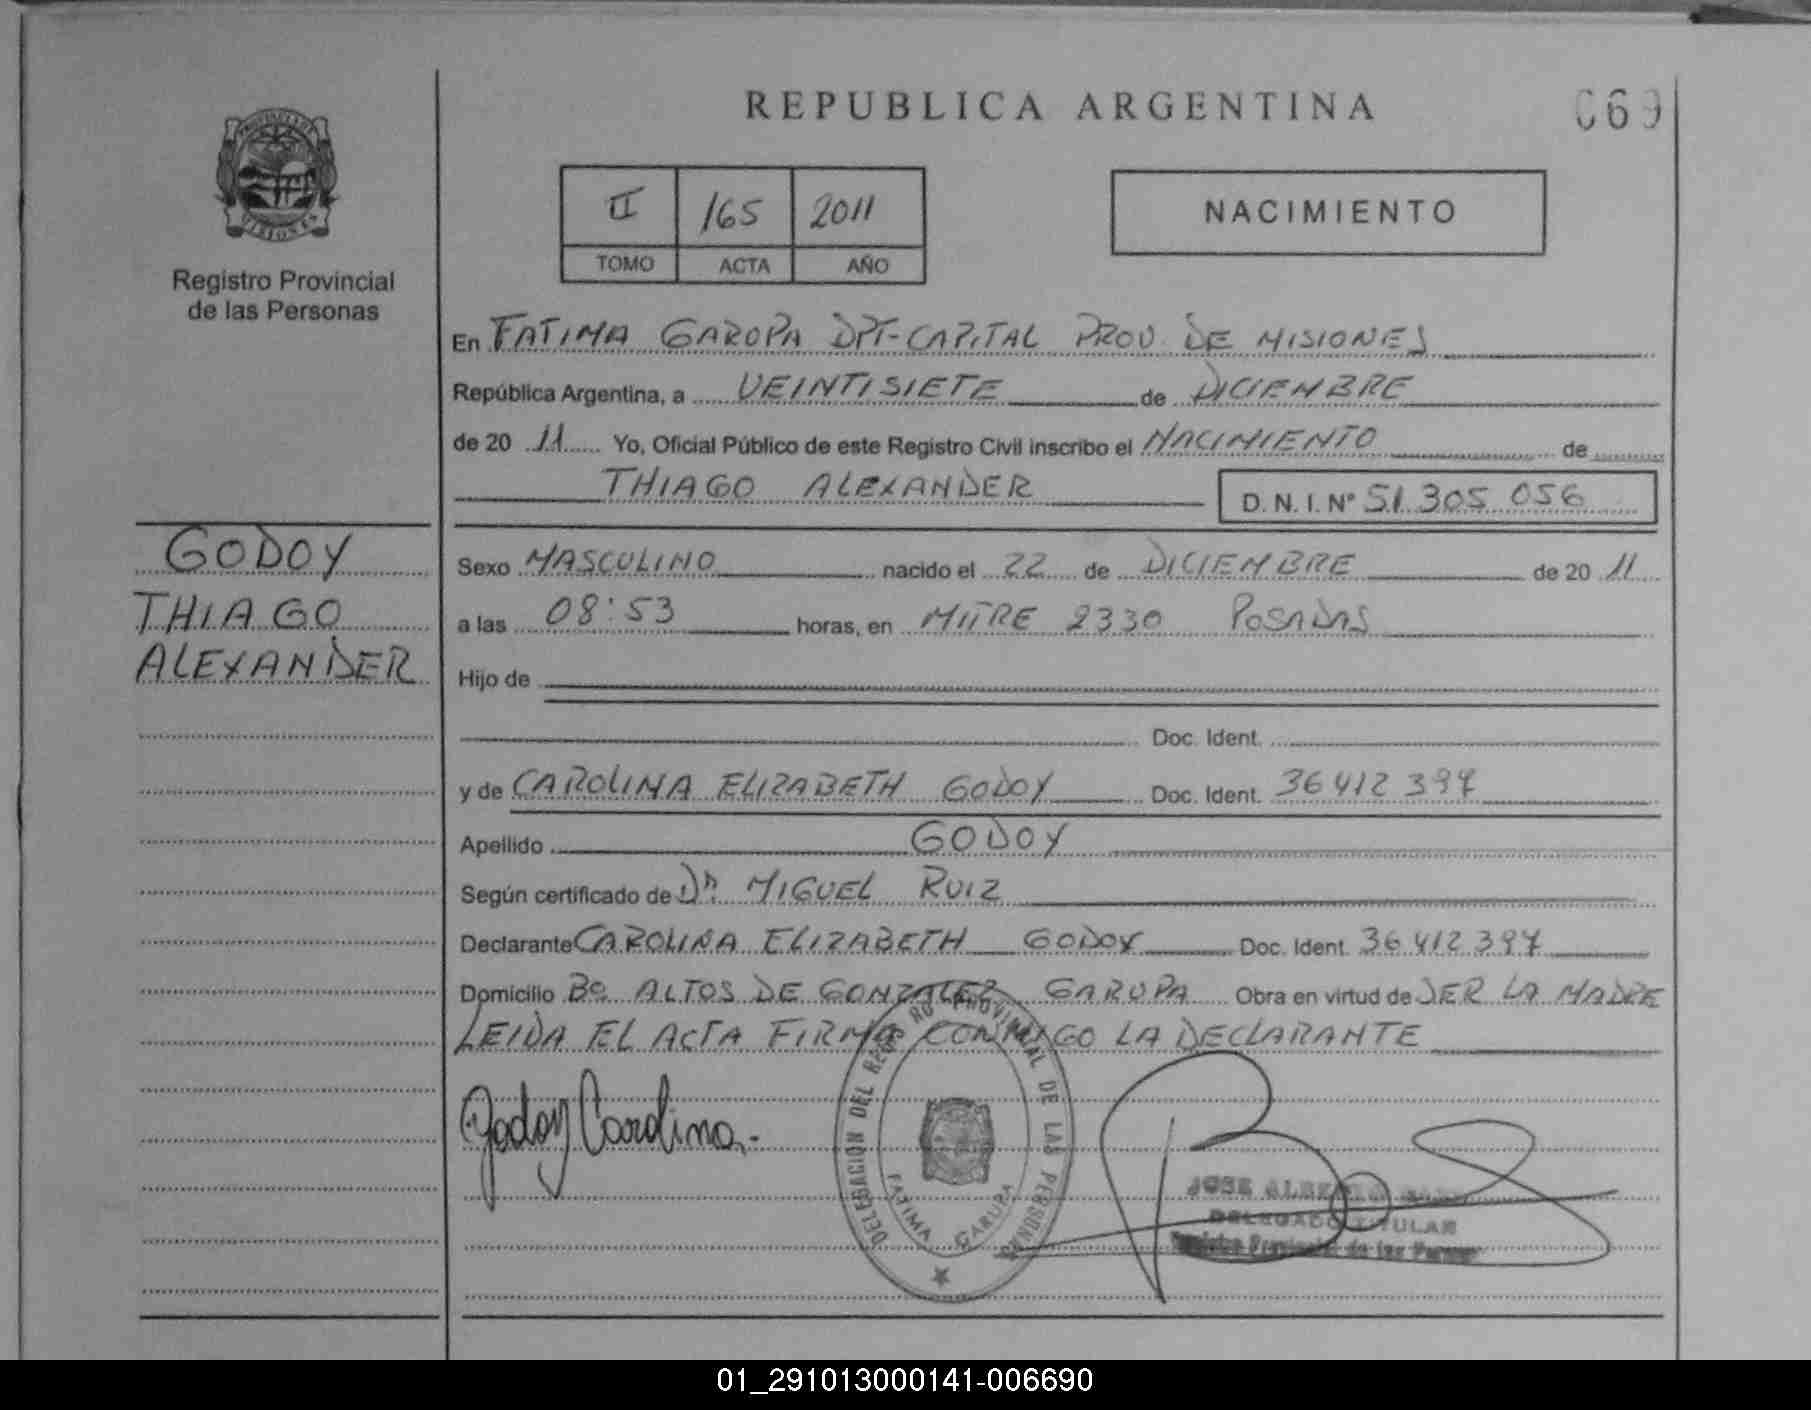 REPUBLICA ARGENTINA
069
PROVINCIA DE
MISIONES
Registro Provincial
de las Personas
II 165 2011
TOMO ACTA AÑO
NACIMIENTO
En FATIMA GARUPA DPT-CAPITAL PROV. DE MISIONES
República Argentina, a VEINTISIETE de DICIEMBRE
de 20 11 Yo, Oficial Público de este Registro Civil inscribo el NACIMIENTO de
THIAGO ALEXANDER D. N. I. Nº 51.305.056
GODOY
THIAGO
ALEXANDER
Sexo MASCULINO nacido el 22 de DICIEMBRE de 20 11
a las 08:53 horas, en MITRE 2330 POSADAS
Hijo de
Doc. Ident.
y de CAROLINA ELIZABETH GODOY Doc. Ident. 36 412 397
Apellido GODOY
Según certificado de Dr. MIGUEL RUIZ
Declarante CAROLINA ELIZABETH GODOY Doc. Ident. 36.412.397
Domicilio Bº ALTOS DE GONZALEZ GARUPA Obra en virtud de SER LA MADRE
LEIDA EL ACTA FIRMA CONMIGO LA DECLARANTE
Godoy Carolina.-
DELEGACION DEL REGISTRO PROVINCIAL DE LAS PERSONAS
FATIMA GARUPA
JOSE ALBERTO
DELEGADO TITULAR
Registro Provincial de las Personas
01_291013000141-006690